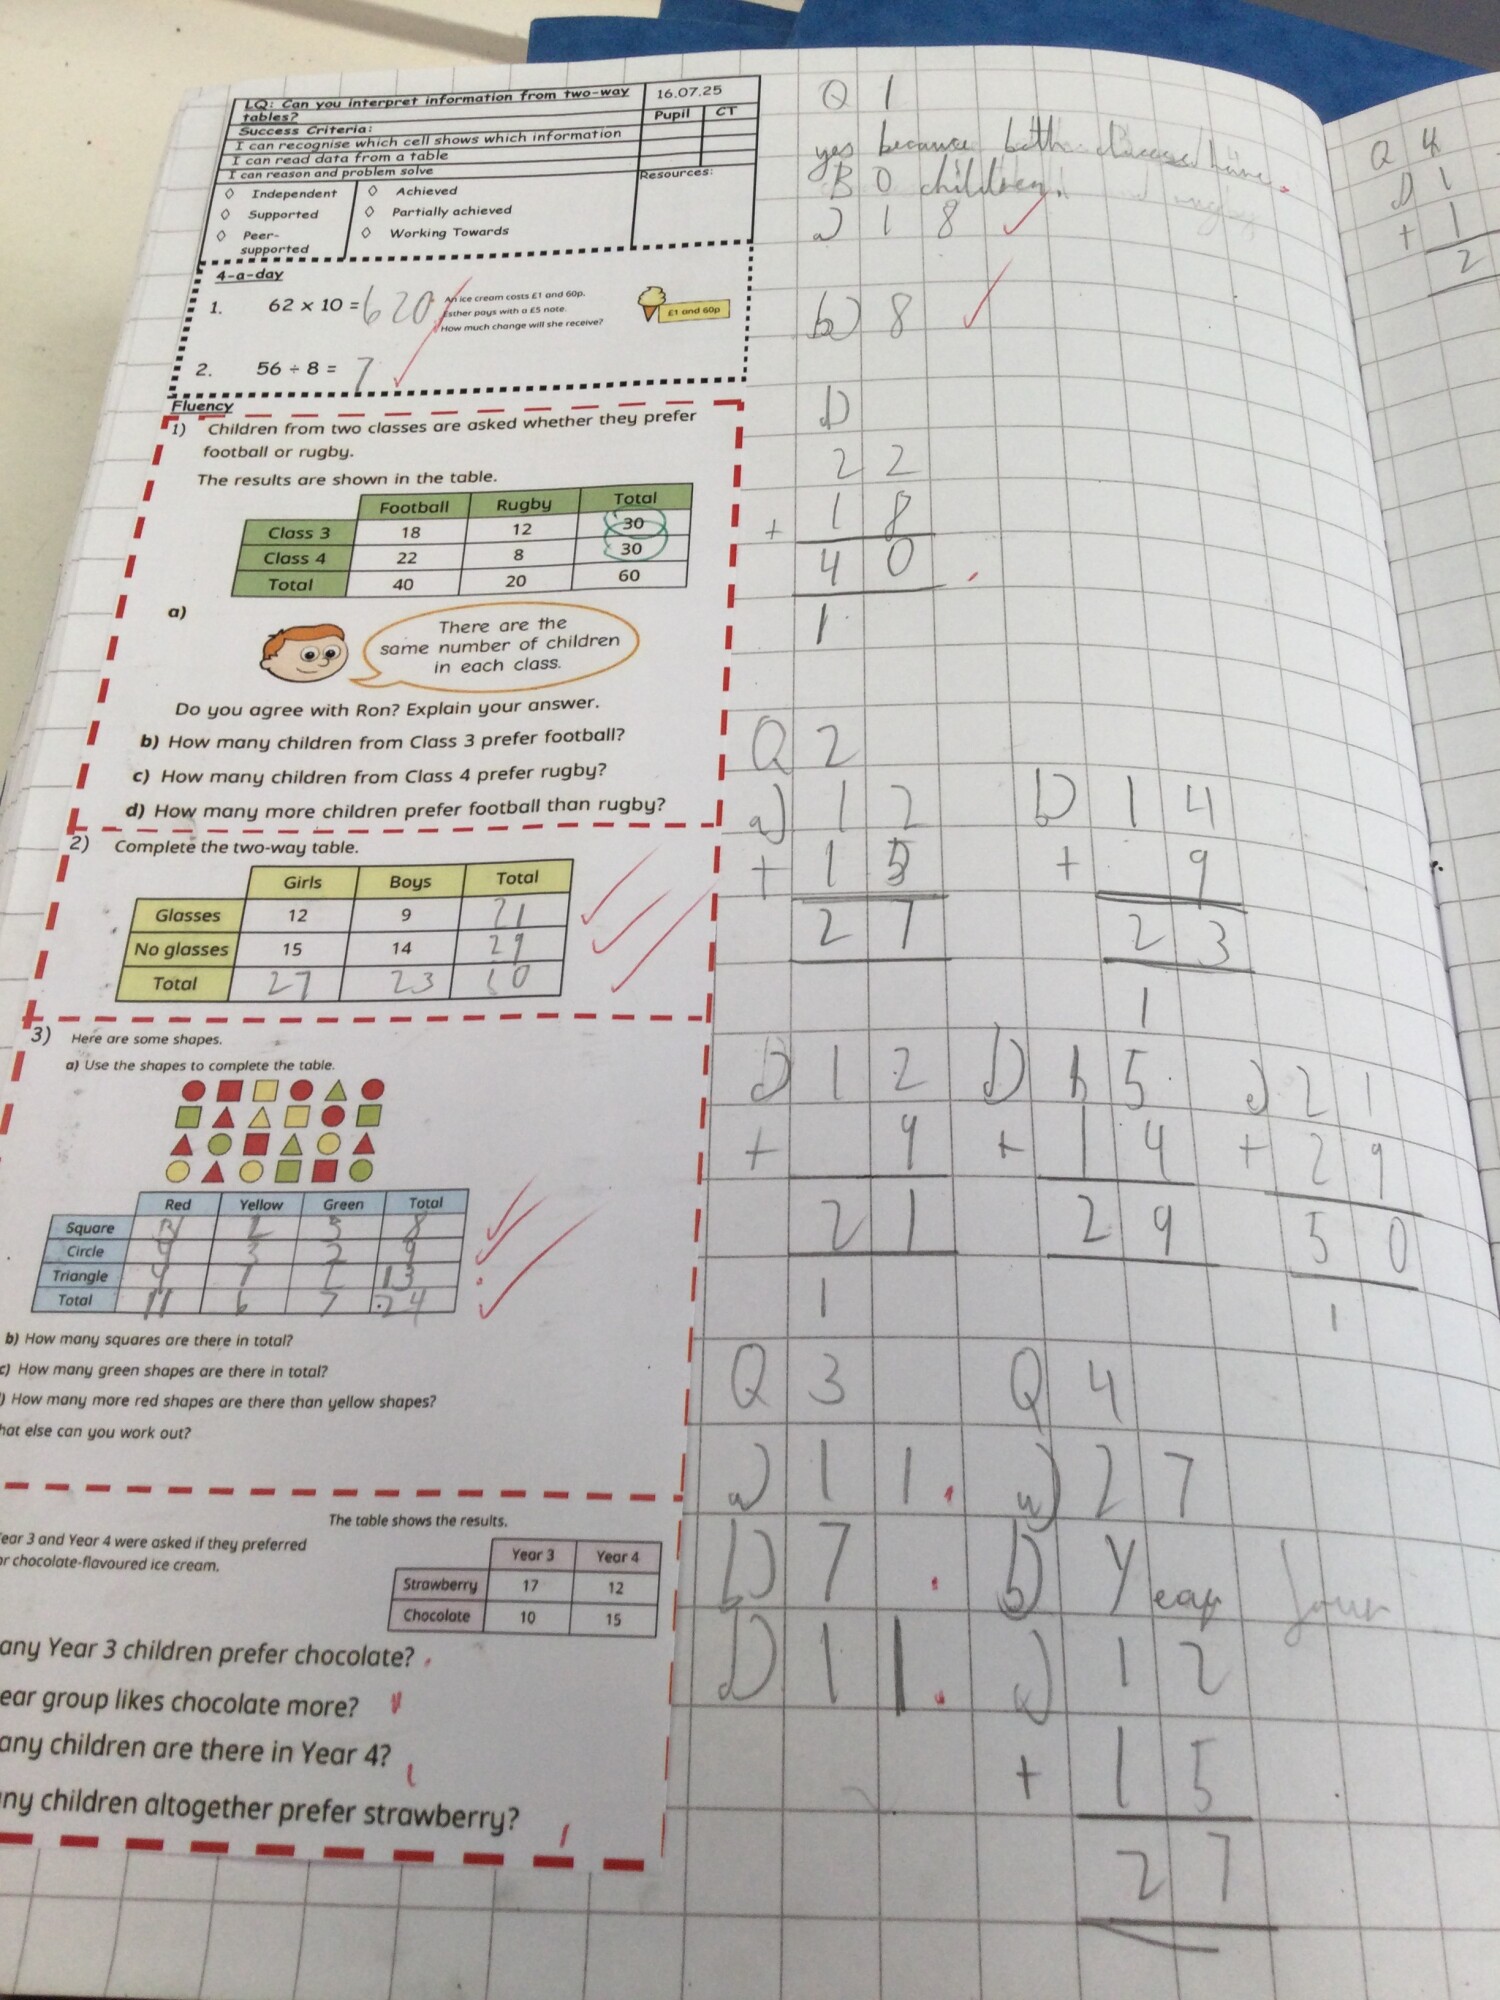 LQ: Can you interpret information from two-way tables?
16.07.25
Pupil CT
Success Criteria:
I can recognise which cell shows which information
I can read data from a table
I can reason and problem solve
Resources:
◊ Independent ◊ Achieved
◊ Supported ◊ Partially achieved
◊ Peer-supported ◊ Working Towards
4-a-day
1. 62 x 10 = 620
An ice cream costs £1 and 60p.
Esther pays with a £5 note.
How much change will she receive?
£1 and 60p
2. 56 ÷ 8 = 7
Fluency
1) Children from two classes are asked whether they prefer
football or rugby.
The results are shown in the table.
Football Rugby Total
Class 3 18 12 30
Class 4 22 8 30
Total 40 20 60
a)
There are the
same number of children
in each class.
Do you agree with Ron? Explain your answer.
b) How many children from Class 3 prefer football?
c) How many children from Class 4 prefer rugby?
d) How many more children prefer football than rugby?
2) Complete the two-way table.
Girls Boys Total
Glasses 12 9 21
No glasses 15 14 29
Total 27 23 50
3) Here are some shapes.
a) Use the shapes to complete the table.
Red Yellow Green Total
Square 3 8
Circle 3 2 9
Triangle 13
Total 11 6 7 24
b) How many squares are there in total?
c) How many green shapes are there in total?
) How many more red shapes are there than yellow shapes?
hat else can you work out?
The table shows the results.
ear 3 and Year 4 were asked if they preferred
or chocolate-flavoured ice cream.
Year 3 Year 4
Strawberry 17 12
Chocolate 10 15
any Year 3 children prefer chocolate?
ear group likes chocolate more?
any children are there in Year 4?
ny children altogether prefer strawberry?
Q 1
yes because both have
30 children.
a) 18
b) 8
D
22
+ 18
40
1
Q 2
a) 12
+ 15
27
b) 14
+ 9
23
1
D) 12
+ 9
21
1
D) 15
+ 14
29
21
+ 29
50
1
Q 3
a) 11
b) 7
D) 11
Q 4
a) 27
b) Year four
c) 12
+ 15
27
Q 4
D) 1
+ 1
2